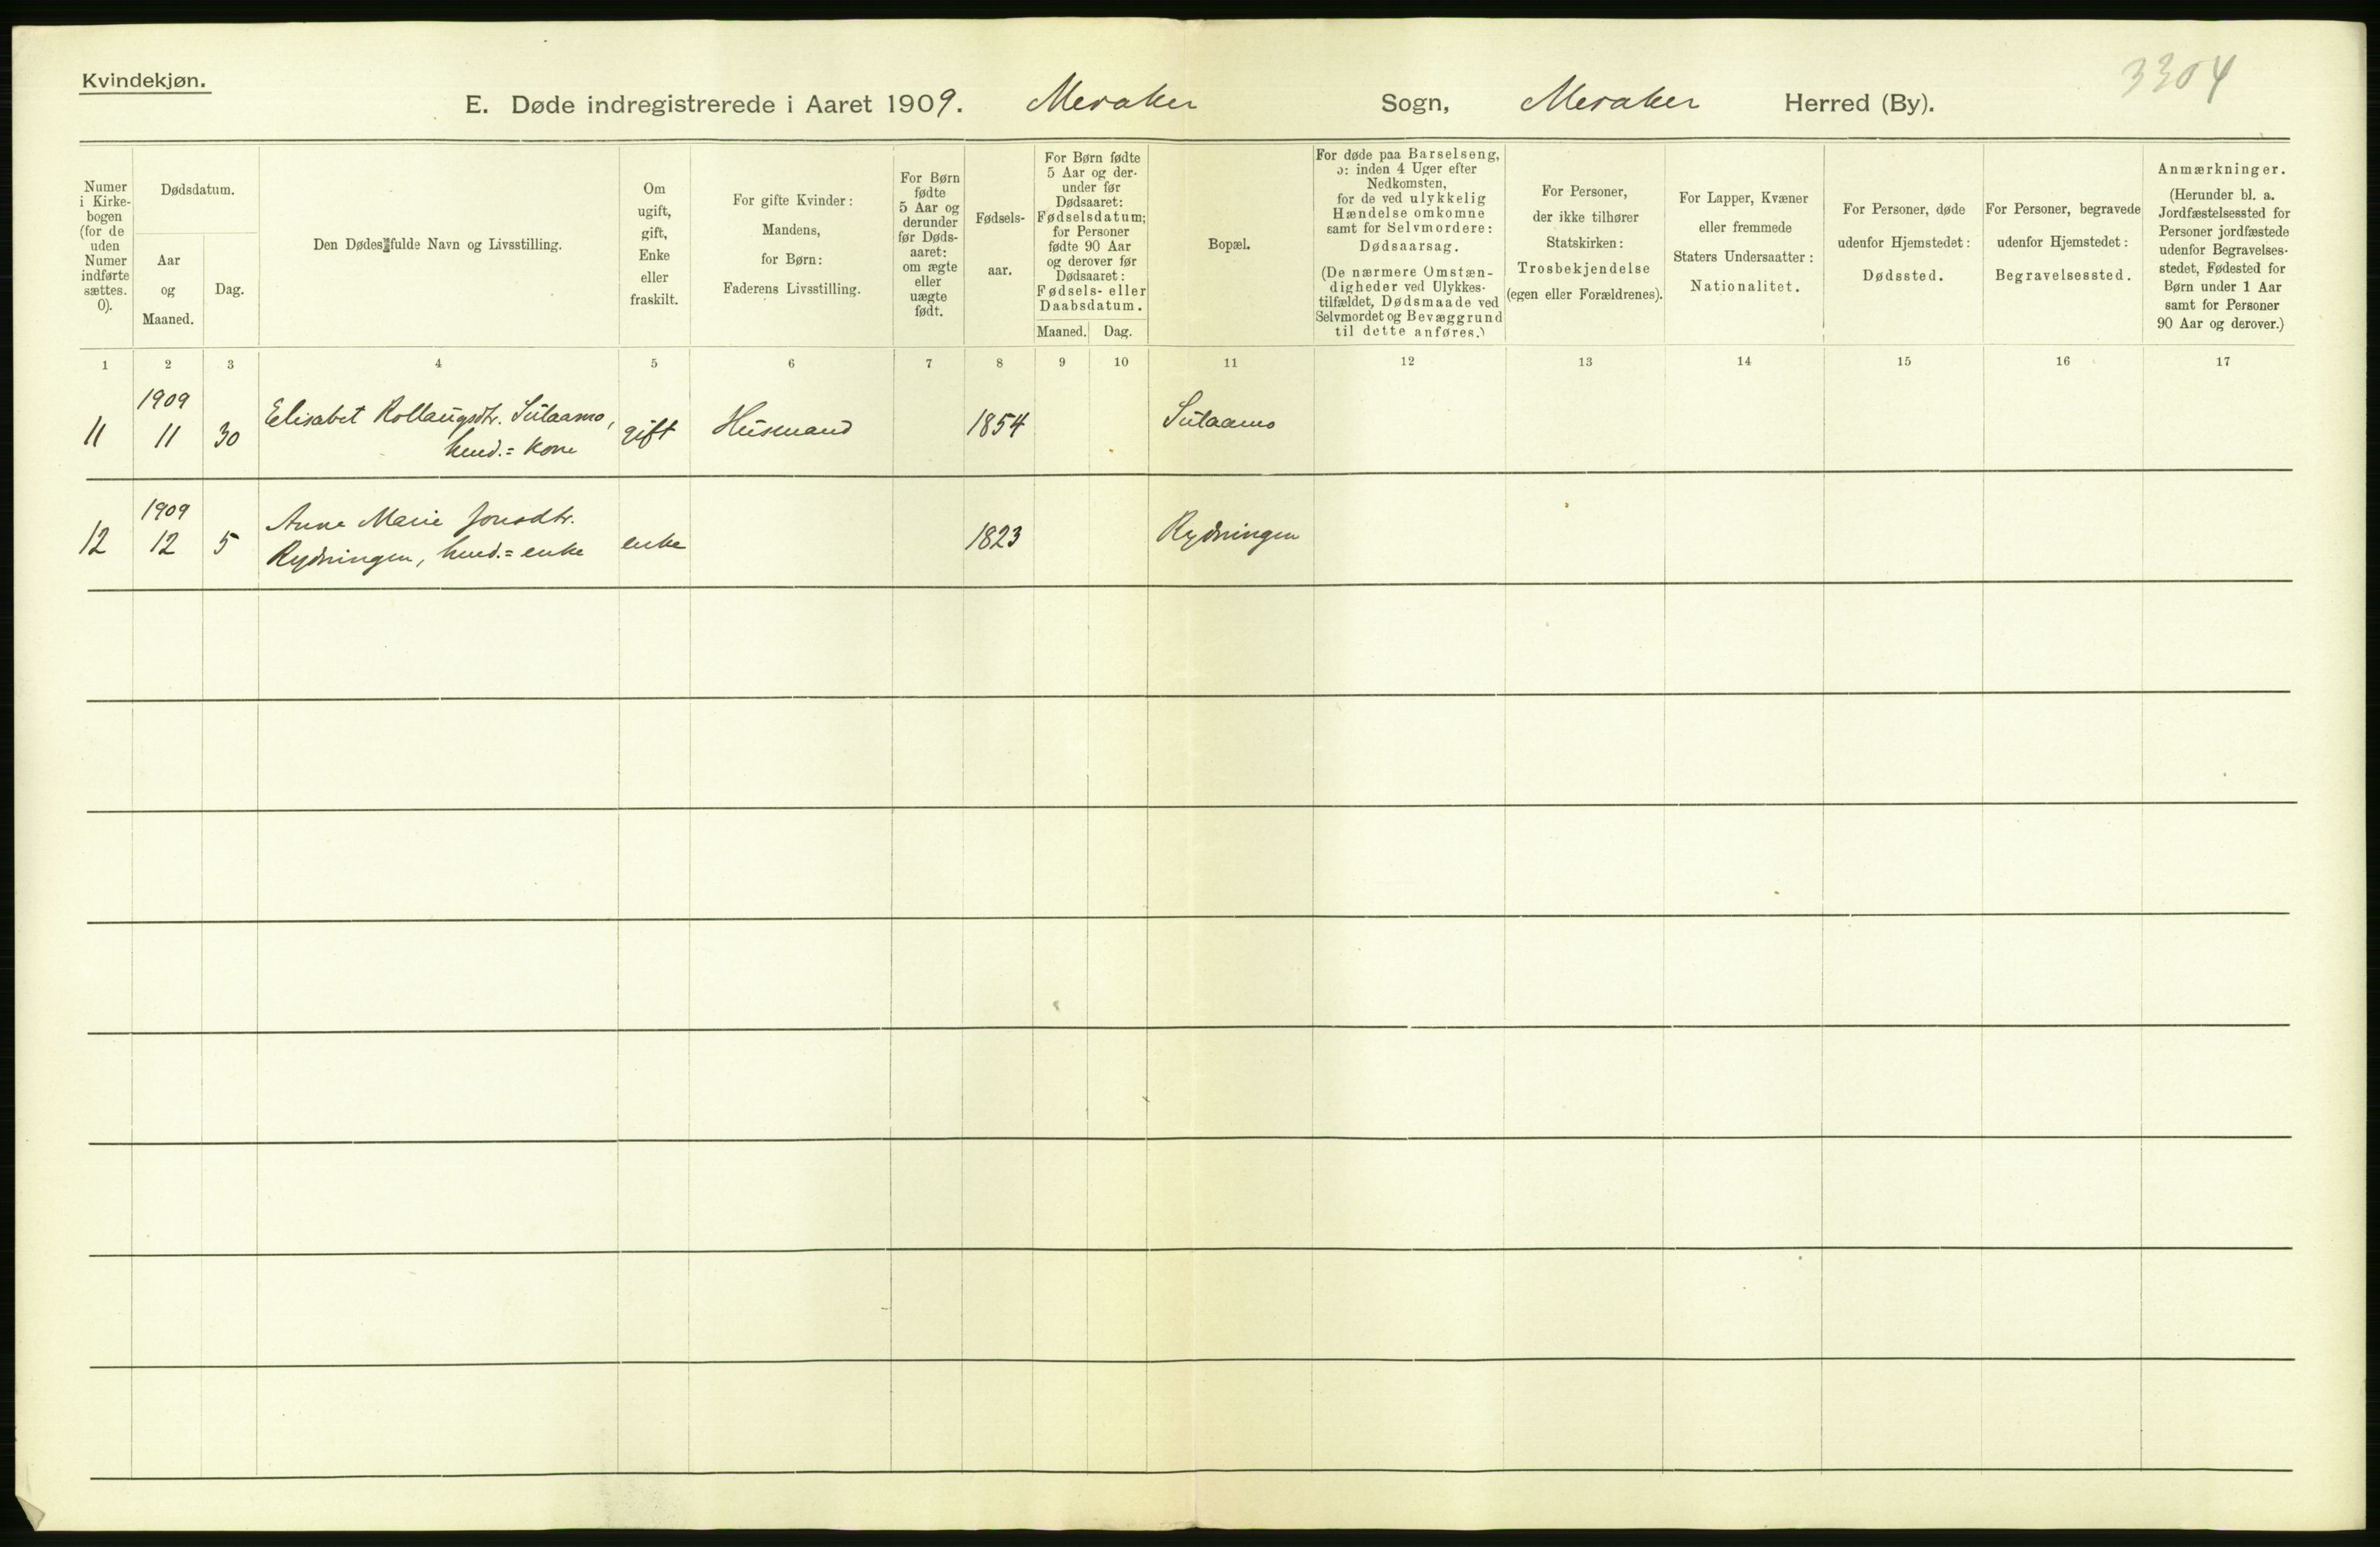 Kvindekjøn.
3304
E. Døde indregistrerede i Aaret 1909. Meraker Sogn, Meraker Herred (By).
Numer
i Kirke-
bogen
(for de
uden
Numer
indførte
sættes.
0).
Dødsdatum.
Aar
og
Maaned.
Dag.
Den Dødes fulde Navn og Livsstilling.
Om
ugift,
gift,
Enke
eller
fraskilt.
For gifte Kvinder:
Mandens,
for Børn:
Faderens Livsstilling.
For Børn
fødte
5 Aar og
derunder
før Døds-
aaret:
om ægte
eller
uægte
født.
Fødsels-
aar.
For Børn fødte
5 Aar og der-
under før
Dødsaaret:
Fødselsdatum;
for Personer
fødte 90 Aar
og derover før
Dødsaaret:
Fødsels- eller
Daabsdatum.
Maaned. Dag.
Bopæl.
For døde paa Barselseng,
ɔ: inden 4 Uger efter
Nedkomsten,
for de ved ulykkelig
Hændelse omkomne
samt for Selvmordere:
Dødsaarsag.
(De nærmere Omstæn-
digheder ved Ulykkes-
tilfældet, Dødsmaade ved
Selvmordet og Bevæggrund
til dette anføres.)
For Personer,
der ikke tilhører
Statskirken:
Trosbekjendelse
(egen eller Forældrenes).
For Lapper, Kvæner
eller fremmede
Staters Undersaatter:
Nationalitet.
For Personer, døde
udenfor Hjemstedet:
Dødssted.
For Personer, begravede
udenfor Hjemstedet:
Begravelsessted.
Anmærkninger.
(Herunder bl. a.
Jordfæstelsessted for
Personer jordfæstede
udenfor Begravelses-
stedet, Fødested for
Børn under 1 Aar
samt for Personer
90 Aar og derover.)
1 2 3 4 5 6 7 8 9 10 11 12 13 14 15 16 17
1909
11 11 30 Elisabet Rollaugsdtr. Sulaamo, gift Husmand 1854 Sulaamo
husm.= kone
1909
12 12 5 Anne Marie Jonsdtr. enke 1823 Rydningen
Rydningen, husm.= enke